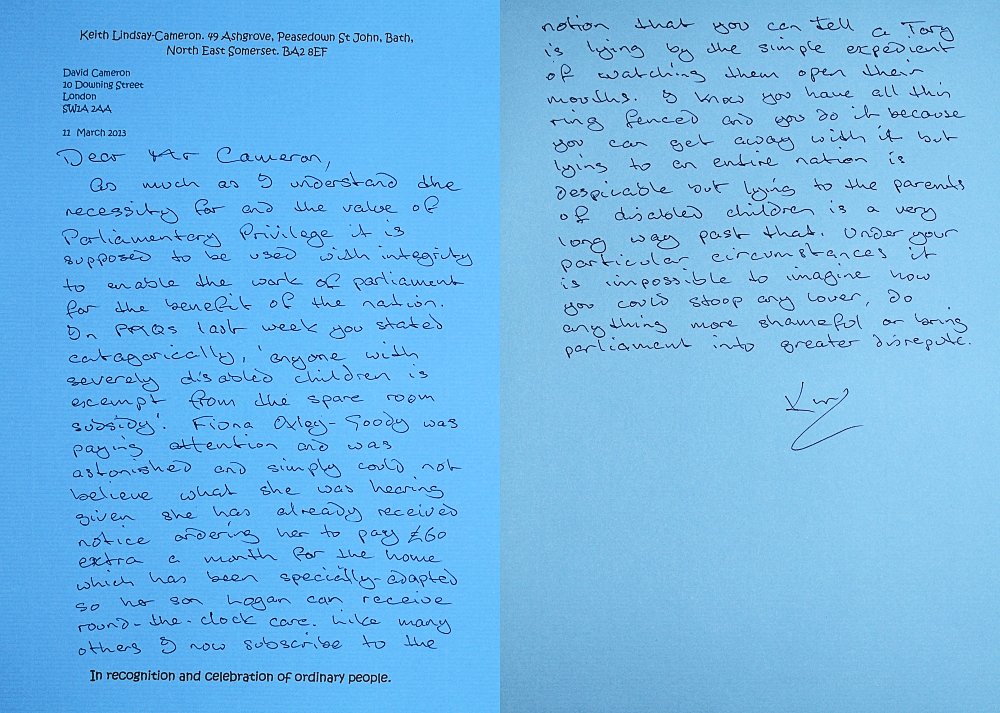 Keith Lindsay-Cameron. 49 Ashgrove, Peasedown St John, Bath,
North East Somerset. BA2 8EF
David Cameron
10 Downing Street
London
SW1A 2AA
11 March 2013
Dear Mr Cameron,
As much as I understand the
necessity for and the value of
Parliamentary Privilege it is
supposed to be used with integrity
to enable the work of parliament
for the benefit of the nation.
In PMQs last week you stated
catagorically, 'anyone with
severely disabled children is
exempt from the spare room
subsidy'. Fiona Oxley-Goody was
paying attention and was
astonished and simply could not
believe what she was hearing
given she has already received
notice ordering her to pay £60
extra a month for the home
which has been specially-adapted
so her son Logan can receive
round-the-clock care. Like many
others I now subscribe to the
In recognition and celebration of ordinary people.
notion that you can tell a Tory
is lying by the simple expedient
of watching them open their
mouths. I know you have all this
ring fenced and you do it because
you can get away with it but
lying to an entire nation is
despicable but lying to the parents
of disabled children is a very
long way past that. Under your
particular circumstances it
is impossible to imagine how
you could stoop any lower, do
anything more shameful or bring
parliament into greater disrepute.